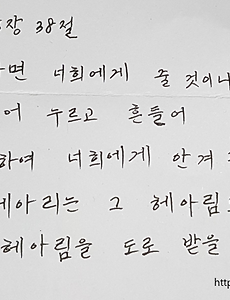 장 38절
면 너희에게 줄 것이니
어 누르고 흔들어
하여 너희에게 안겨
헤아리는 그 헤아림
헤아림을 도로 받을
http